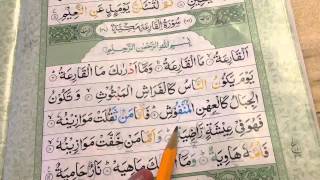 لَتُسْـَٔلُنَّ يَوْمَئِذٍ عَنِ النَّعِيْمِ
سُوْرَةُ الْقَارِعَةِ مَكِّيَّةٌ
بِسْمِ اللهِ الرَّحْمٰنِ الرَّحِيْمِ
اَلْقَارِعَةُ مَا الْقَارِعَةُ وَمَآ اَدْرٰىكَ مَا الْقَارِعَةُ
يَوْمَ يَكُوْنُ النَّاسُ كَالْفَرَاشِ الْمَبْثُوْثِ وَتَكُوْنُ
الْجِبَالُ كَالْعِهْنِ الْمَنْفُوْشِ فَاَمَّا مَنْ ثَقُلَتْ مَوَازِيْنُهٗ
فَهُوَ فِيْ عِيْشَةٍ رَّاضِيَةٍ وَاَمَّا مَنْ خَفَّتْ مَوَازِيْنُهٗ
هَاوِيَةٌ وَمَآ مَاهِيَهْ نَارٌ حَامِيَةٌ